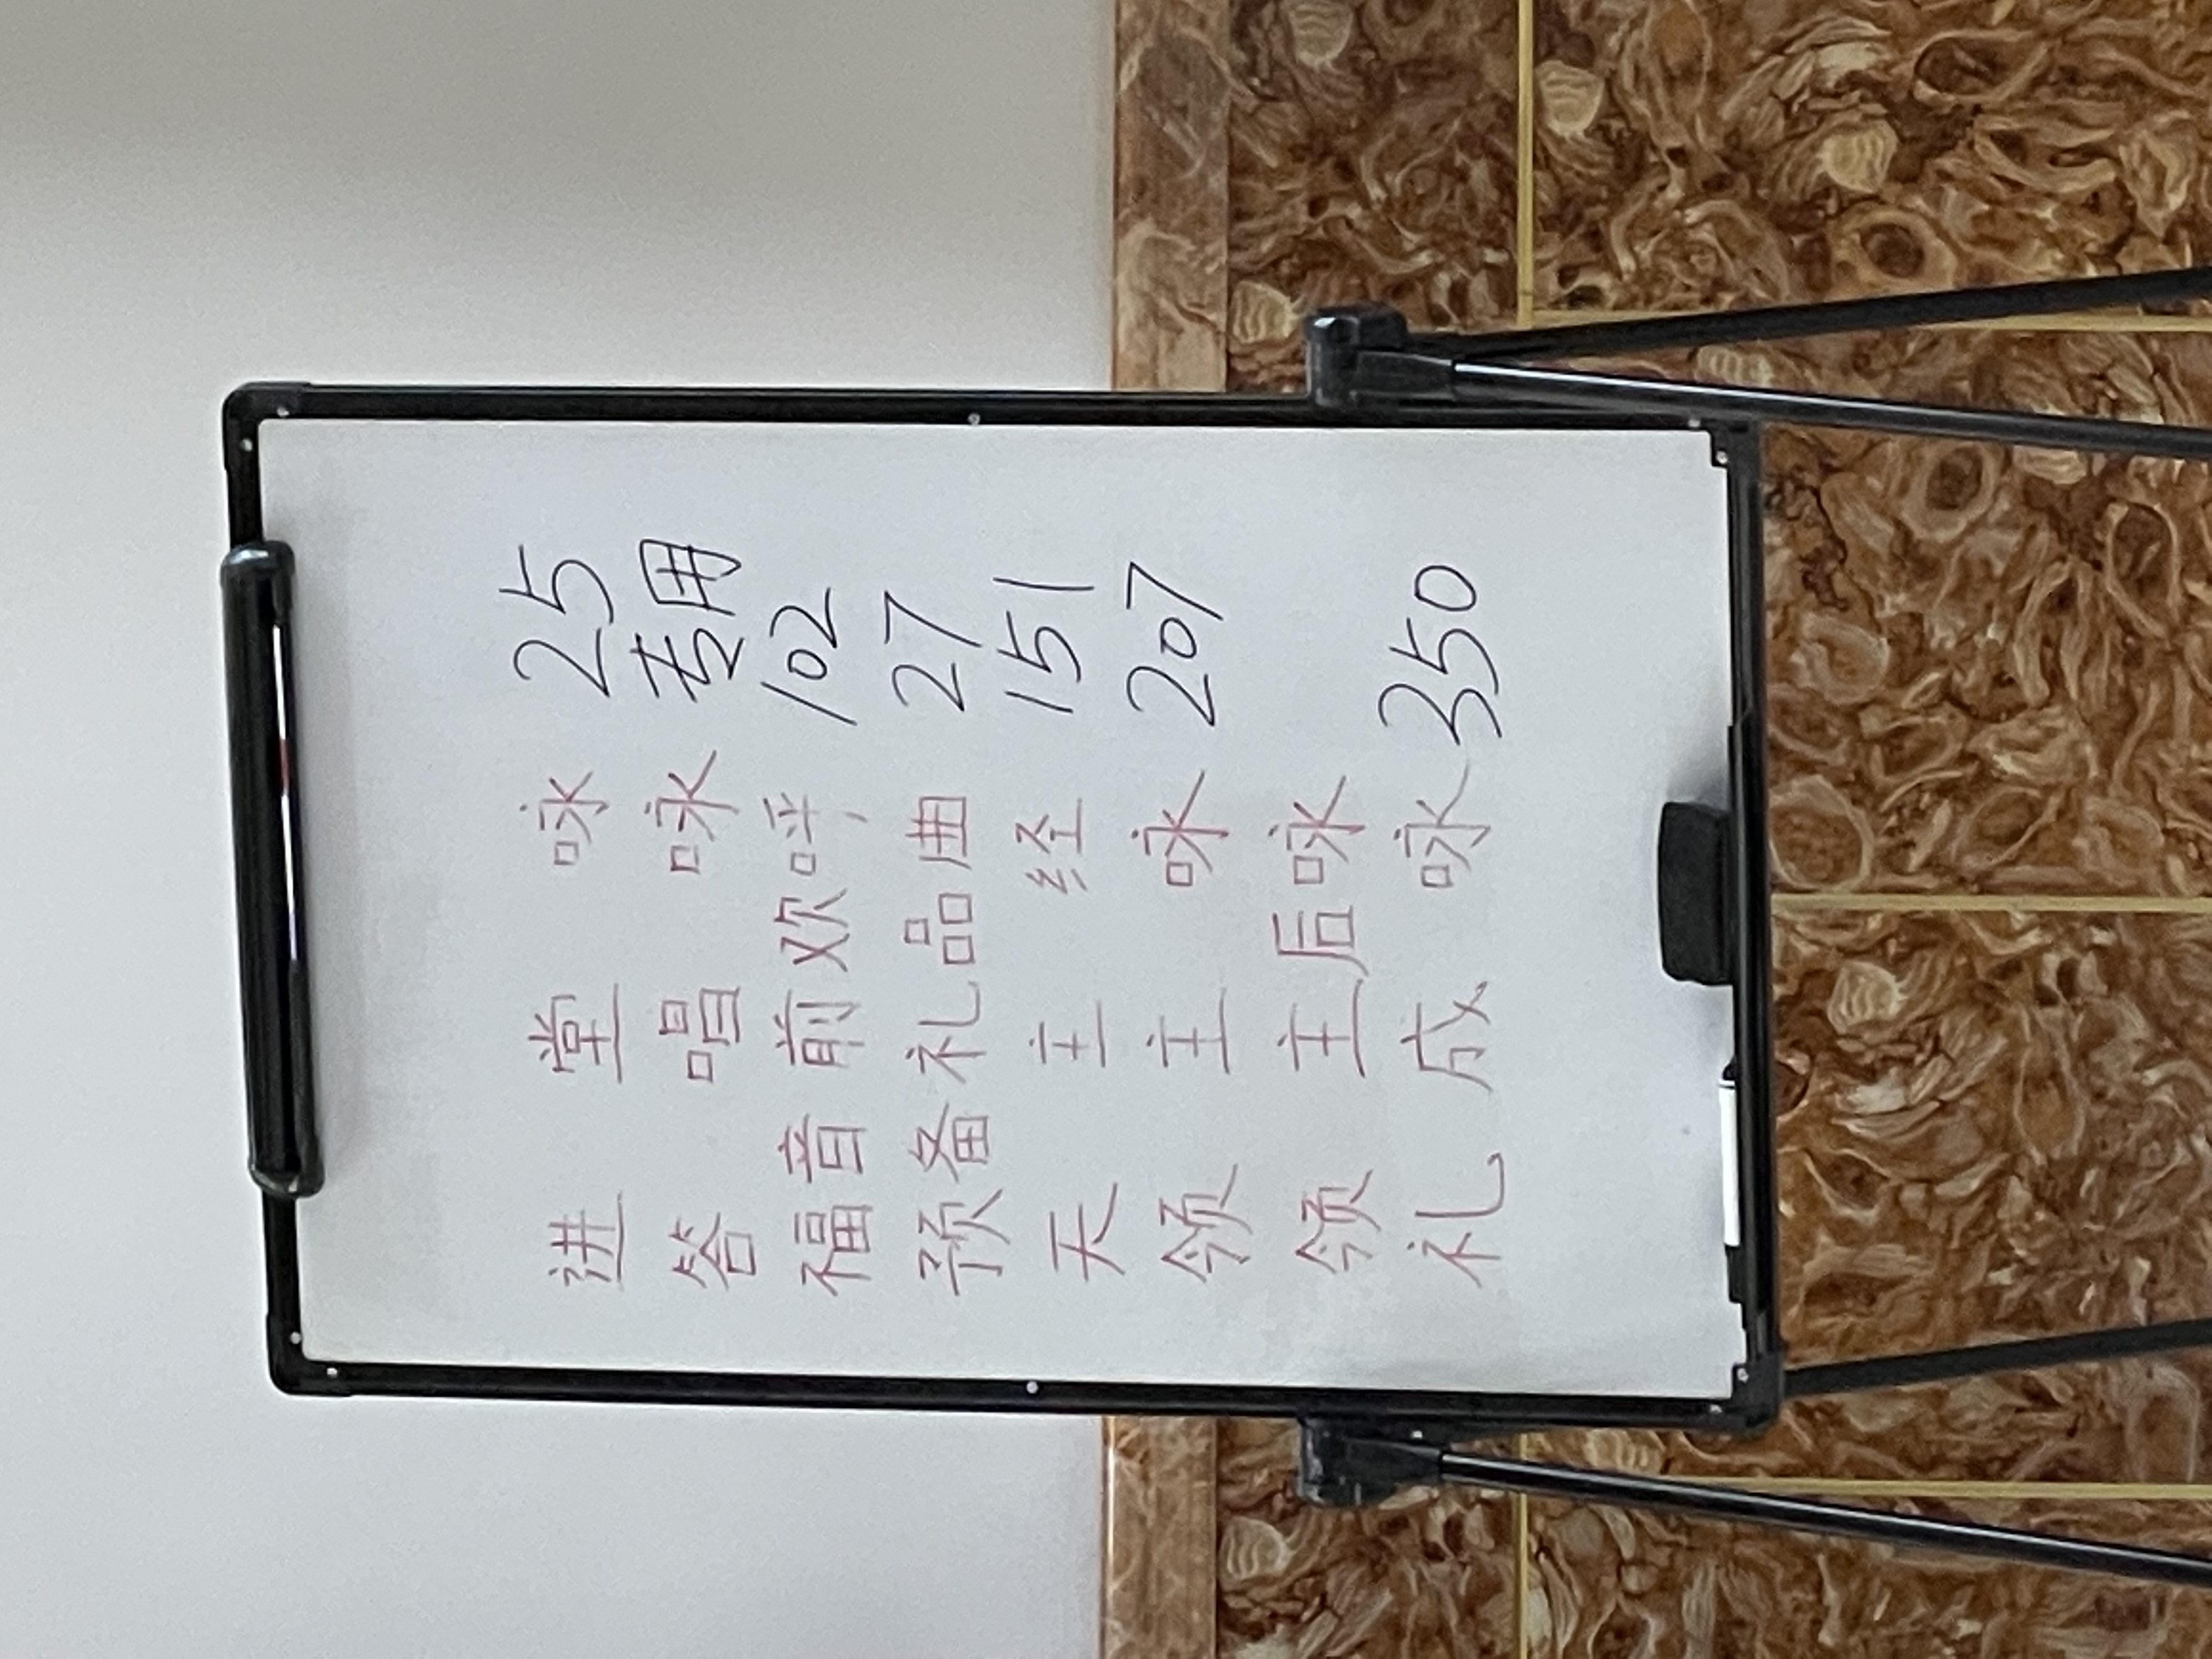 进堂咏 25
答唱咏 专用
福音前欢呼 102
预备礼品曲 27
天主经 151
领主咏 207
领主后咏
礼成咏 350